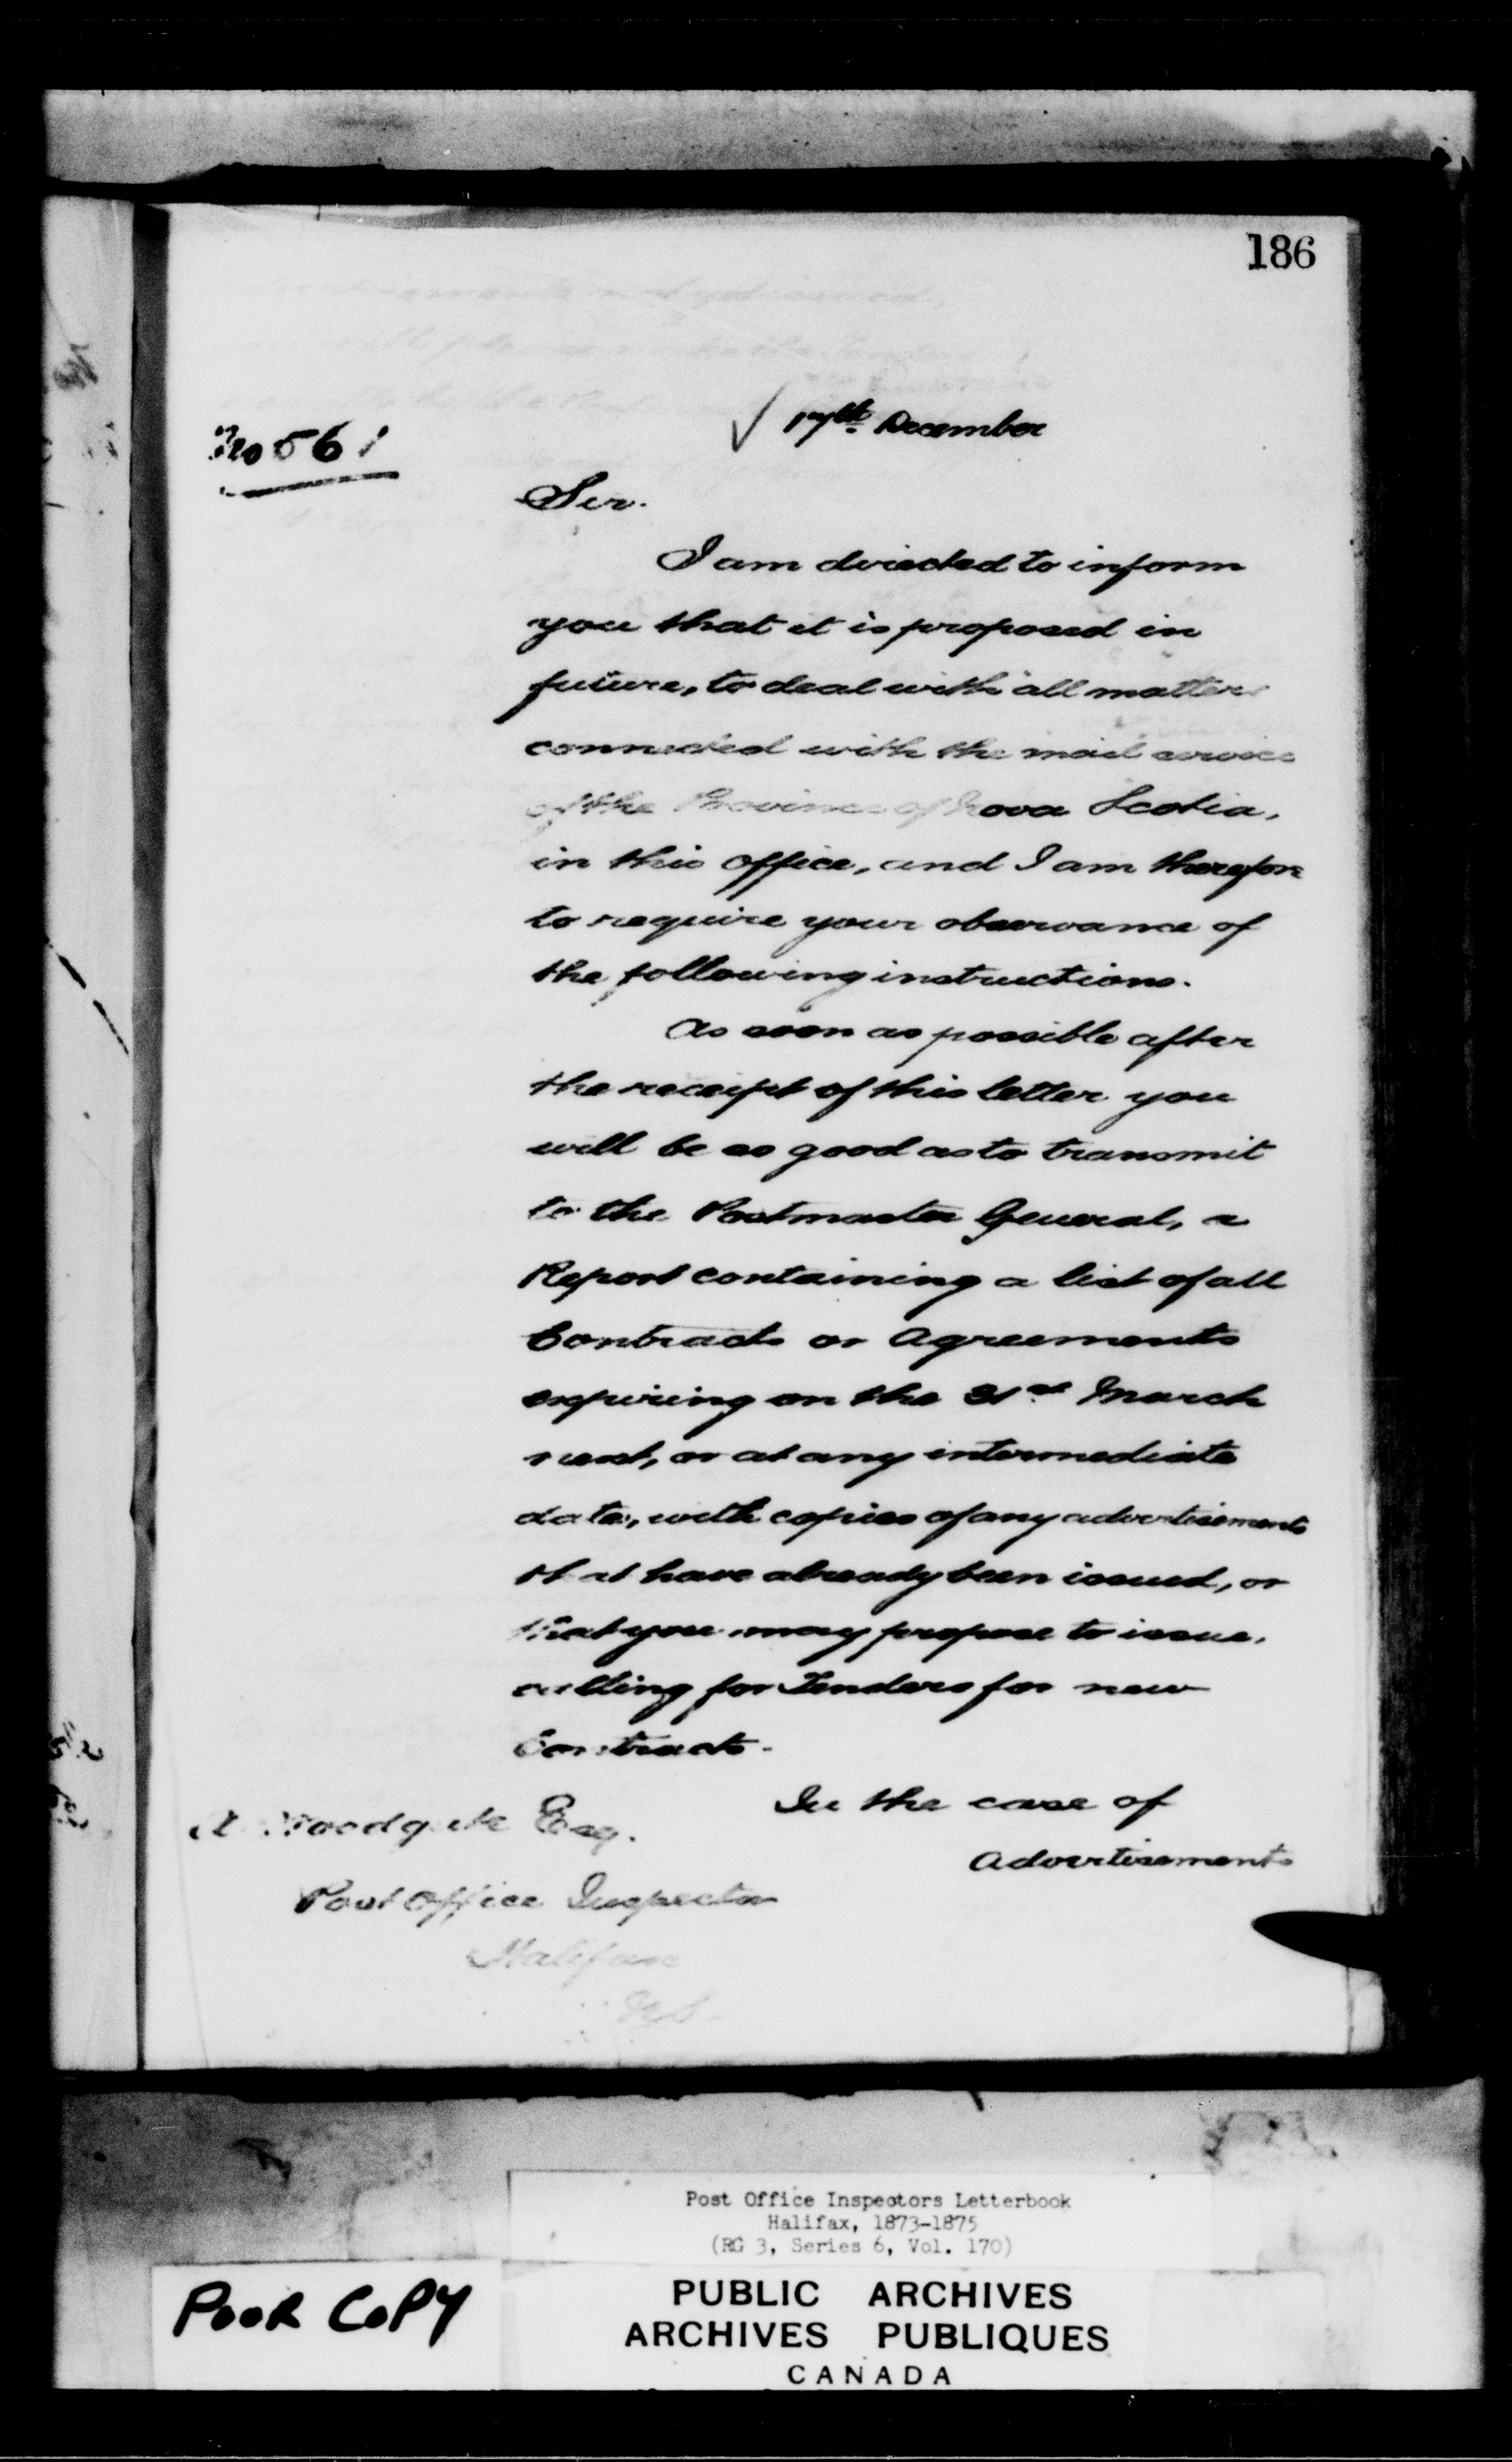 186
17th December
No 561
Sir.
I am directed to inform
you that it is proposed in
future, to deal with all matters
connected with the mail service
of the Province of Nova Scotia,
in this office, and I am therefore
to require your observance of
the following instructions.
As soon as possible after
the receipt of this letter you
will be so good as to transmit
to the Postmaster General, a
Report containing a list of all
Contracts or Agreements
expiring on the 31st March
next, or at any intermediate
date, with copies of any advertisements
that have already been issued, or
that you may propose to issue,
calling for Tenders for new
Contracts.
In the case of
Advertisements
A Woodgate Esq.
Post Office Inspector
Halifax
N.S.
Post Office Inspectors Letterbook
Halifax, 1873-1875
(RG 3, Series 6, Vol. 170)
POOR COPY
PUBLIC ARCHIVES
ARCHIVES PUBLIQUES
CANADA